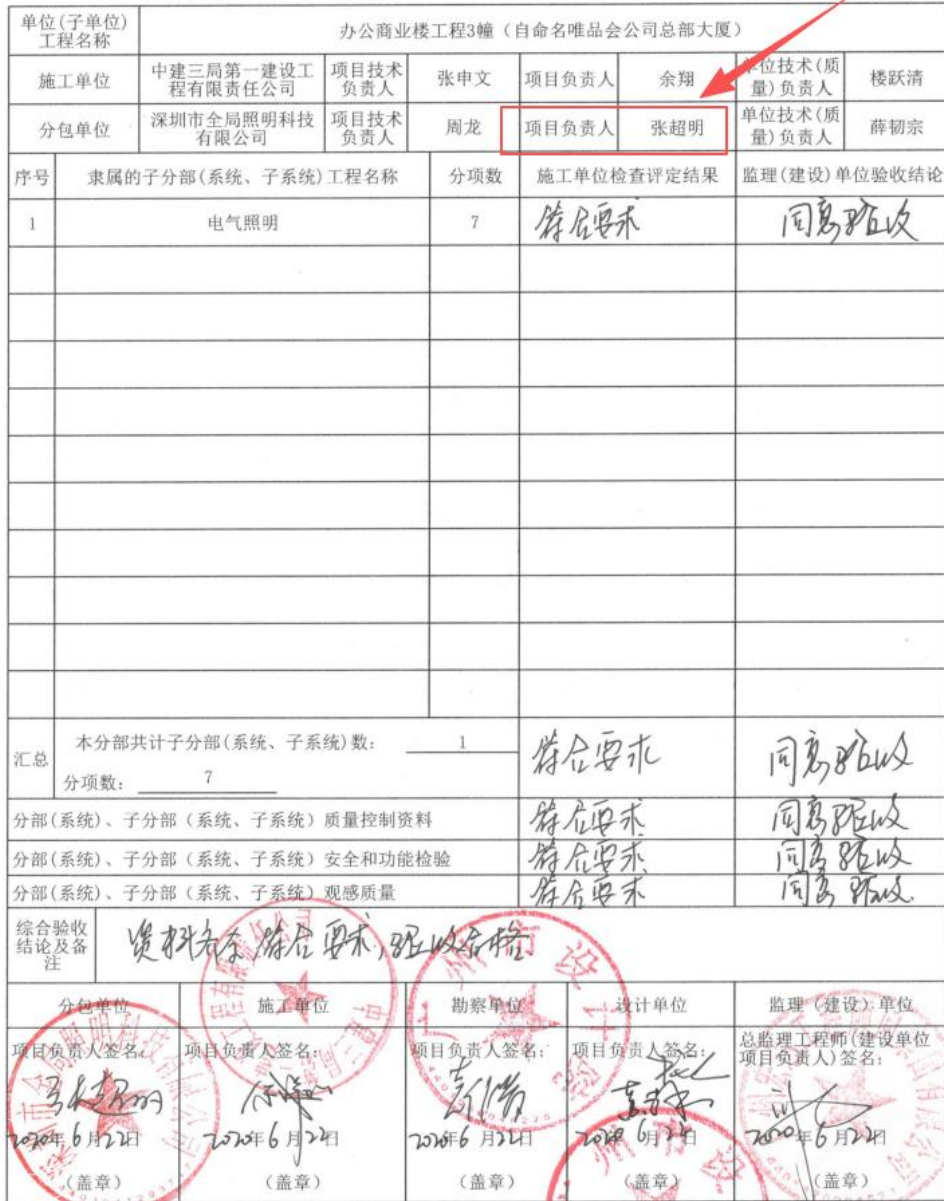 单位(子单位)
工程名称
办公商业楼工程3幢（自命名唯品会公司总部大厦）
施工单位
中建三局第一建设工
程有限责任公司
项目技术
负责人
张申文
项目负责人
余翔
单位技术(质
量)负责人
楼跃清
分包单位
深圳市全局照明科技
有限公司
项目技术
负责人
周龙
项目负责人
张超明
单位技术(质
量)负责人
薛韧宗
序号
隶属的子分部(系统、子系统)工程名称
分项数
施工单位检查评定结果
监理(建设)单位验收结论
1
电气照明
7
符合要求
同意验收
汇总
本分部共计子分部(系统、子系统)数： 1
分项数： 7
符合要求
同意验收
分部(系统)、子分部（系统、子系统）质量控制资料
符合要求
同意验收
分部(系统)、子分部（系统、子系统）安全和功能检验
符合要求
同意验收
分部(系统)、子分部（系统、子系统）观感质量
符合要求
同意验收
综合验收
结论及备
注
资料齐全,符合要求,验收合格.
分包单位
施工单位
勘察单位
设计单位
监理（建设）单位
项目负责人签名：
项目负责人签名：
项目负责人签名：
项目负责人签名：
总监理工程师(建设单位
项目负责人)签名：
张超明
余翔
2020年6月22日
2020年6月22日
2020年6月22日
2020年6月22日
2020年6月22日
（盖章）
（盖章）
（盖章）
（盖章）
（盖章）